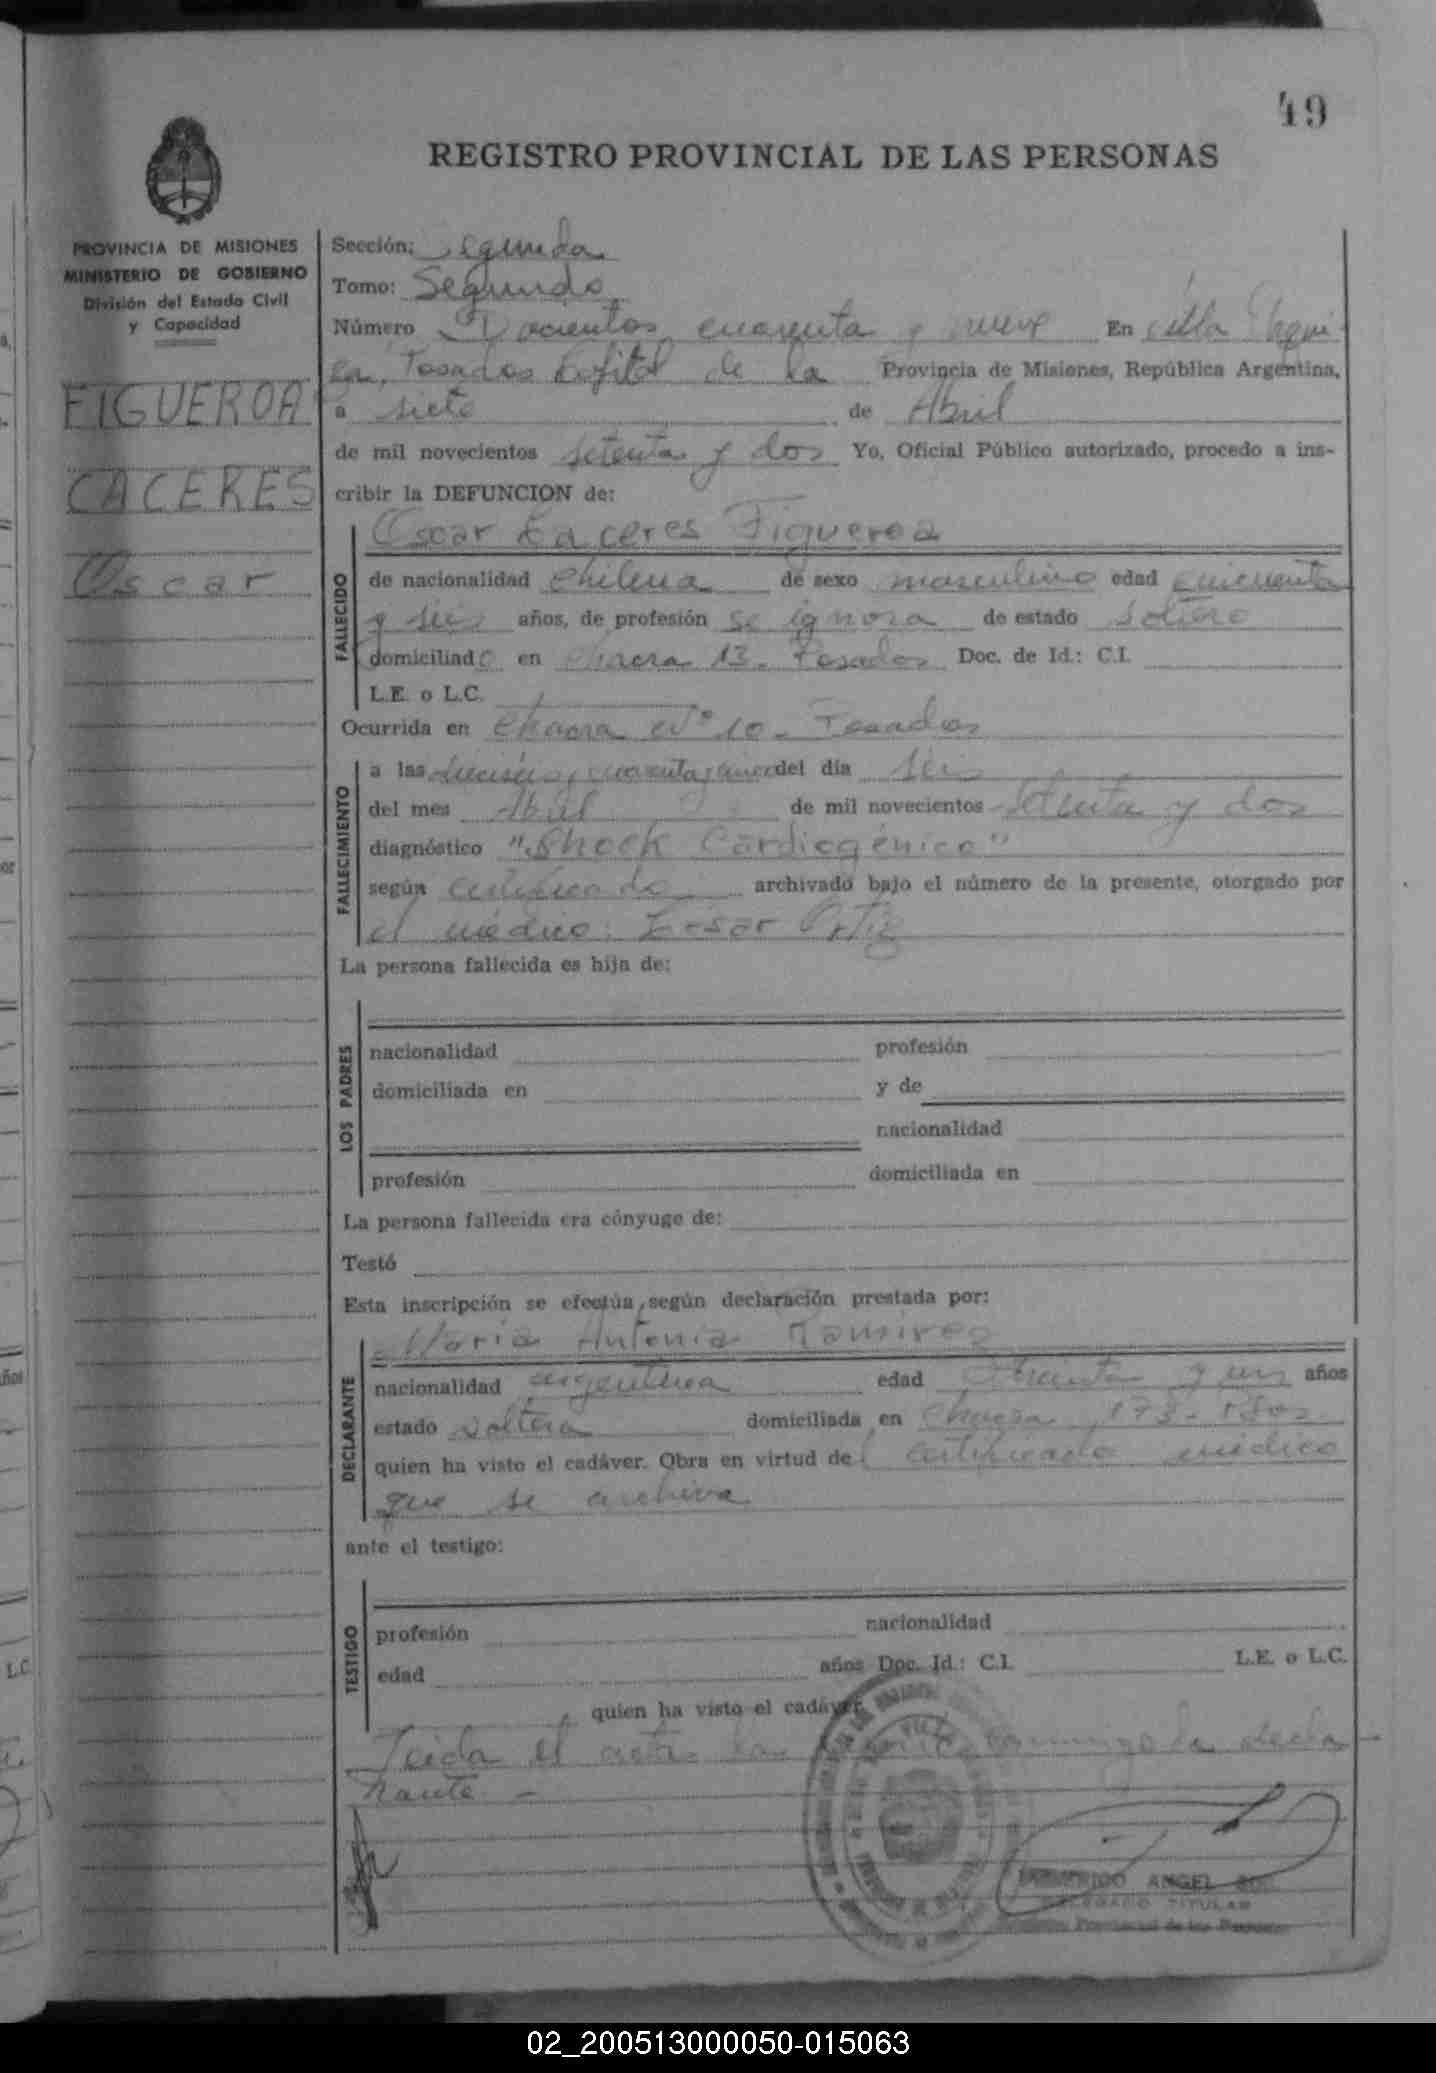 49
REGISTRO PROVINCIAL DE LAS PERSONAS
PROVINCIA DE MISIONES
MINISTERIO DE GOBIERNO
División del Estado Civil
y Capacidad
FIGUEROA
CACERES
Oscar
Sección: Segunda
Tomo: Segundo
Número Docientos cuarenta y nueve En Villa Urqui
za, Posadas Capital de la Provincia de Misiones, República Argentina,
a siete de Abril
de mil novecientos setenta y dos Yo, Oficial Público autorizado, procedo a ins-
cribir la DEFUNCION de:
Oscar Caceres Figueroa
FALLECIDO
de nacionalidad chilena de sexo masculino edad cincuenta
y seis años, de profesión se ignora de estado soltero
domiciliado en chacra 13 - Posadas Doc. de Id.: C.I.
L.E. o L.C.
Ocurrida en chacra Nº 10 - Posadas
FALLECIMIENTO
a las dieciseis y cuarenta y cinco del día seis
del mes Abril de mil novecientos setenta y dos
diagnóstico "Shock Cardiogénico"
según certificado archivado bajo el número de la presente, otorgado por
el médico: Cesar Ortiz
La persona fallecida es hija de:
LOS PADRES
nacionalidad profesión
domiciliada en y de
nacionalidad
profesión domiciliada en
La persona fallecida era cónyuge de:
Testó
Esta inscripción se efectúa según declaración prestada por:
Maria Antonia Ramirez
DECLARANTE
nacionalidad argentina edad treinta y un años
estado soltera domiciliada en chacra 178 - Pdas
quien ha visto el cadáver. Obra en virtud del certificado médico
que se archiva
ante el testigo:
TESTIGO
profesión nacionalidad
edad años Doc. Id.: C.I. L.E. o L.C.
quien ha visto el cadáver
Leida el acta la conmigo la decla
rante -
ANGEL
DELEGADO TITULAR
Registro Provincial de las Personas
02_200513000050-015063